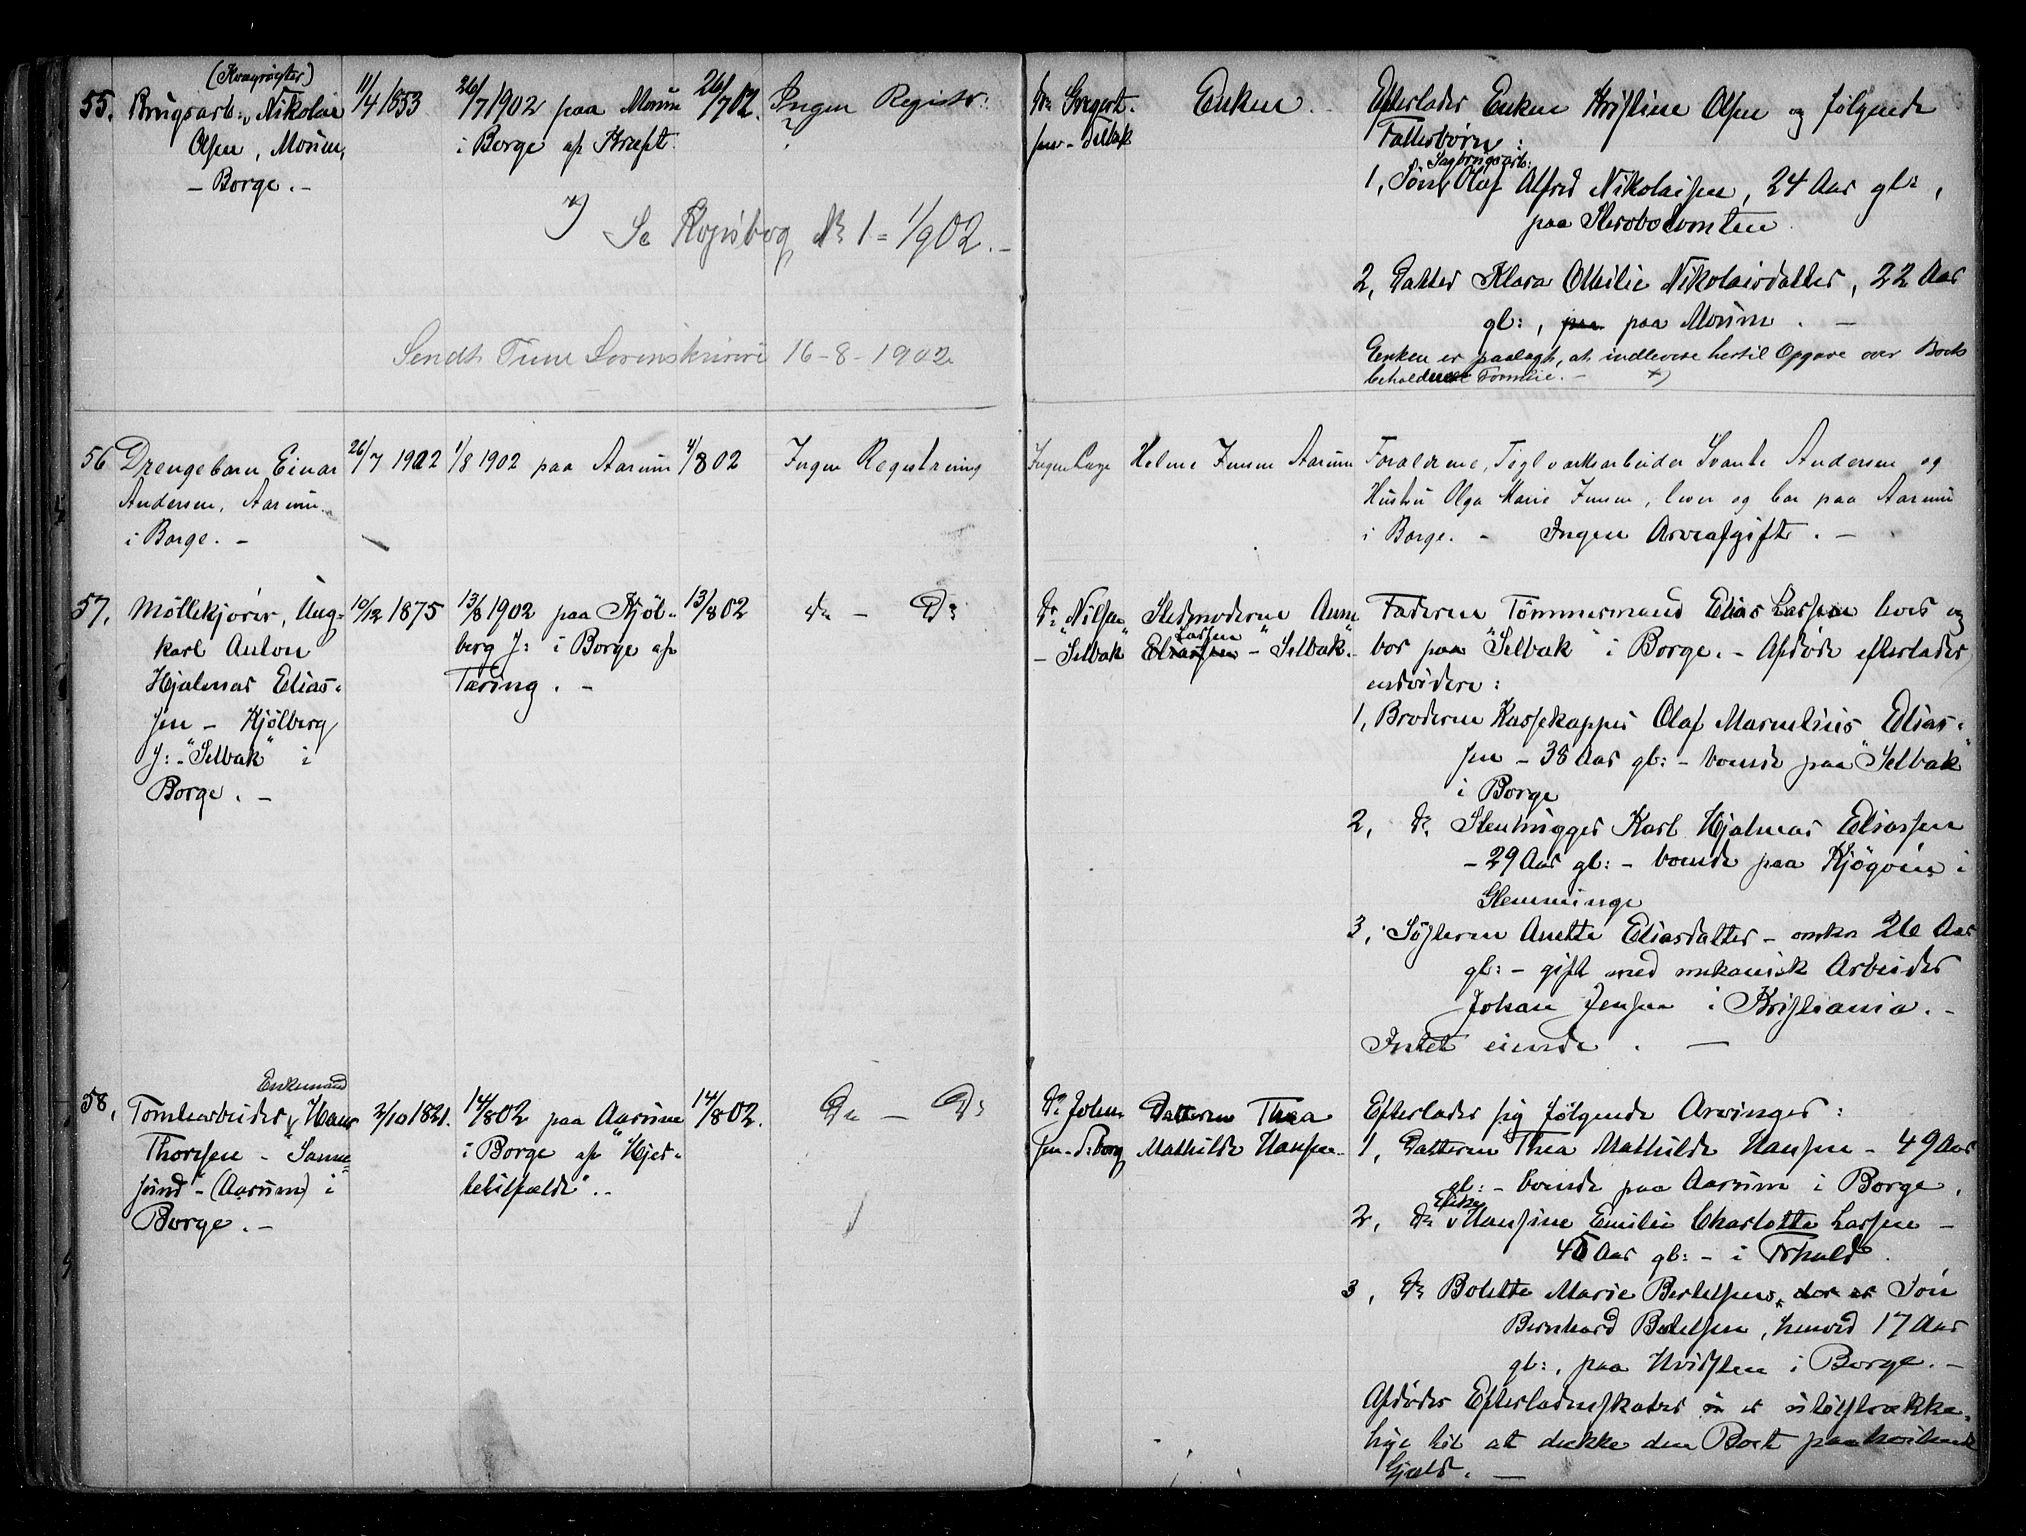 (Kvægrøgter)
55. Brugsarb: Nikolai
Olsen, Moum,
- Borge. -
11/4 1853
26/7 1902 paa Moum
i Borge af Kræft.
26/7 02.
Ingen Registr:
Sen - Selbak
Enken.
Efterlader Enken Kristine Olsen og følgende
Fællesbørn:
Sagbrugsarb:
1, Søn, Olaf Alfred Nikolaisen, 24 Aar gl:,
paa
2, Datter Klara Othilie Nikolaisdatter, 22 Aar
gl:, paa paa Moum. -
Enken er paalagt, at indlevere hertil Opgave over Boets
beholdne Formue. - x)
x) Se Regisbog No 1 = 1/902. -
Sendt Tune Sorenskriveri 16-8-1902
56 Drengebarn Einar
Andersen, Aarum
i Borge. -
26/7 1902
1/8 1902 paa Aarum
4/8 02
Ingen Registrering
Ingen Læge
Helene Jensen Aarum
Forældrene, Teglværksarbeider Svante Andersen og
Hustru Olga Marie Jensen, lever og bor paa Aarum
i Borge. - Ingen Arveafgift. -
57, Møllekjører, Ung-
karl Anton
Hjalmar Elias-
sen - Kjølberg
J: - "Selbak" i
Borge. -
10/12 1875
13/8 1902 paa Kjøl-
berg J: i Borge af
Tæring. -
13/8 02
Do - Do
Dr. Nilsen
- Selbak
Stedmoderne Anne
Larsen
Eliassen - "Selbak".
Faderen Tømmermand Elias Larsen lever og
bor paa "Selbak" i Borge. - Afdøde efterlader
endvidere:
1, Broderen Kassekapper Olaf Marnelius Elias-
sen - 38 Aar gl: - boende paa "Selbak"
i Borge
2, Do. Stenhugger Karl Hjalmar Eliassen
- 29 Aar gl: - boende paa i
Glemminge
3, Søsteren Anette Eliasdatter - 26 Aar
gl: - gift med mekanisk Arbeider
Johan Jensen i Kristiania. -
Intet eiende. -
Enkemand
58, Tomtearbeider, Hans
Thorsen - Sanne-
sund - (Aarum) i
Borge. -
2/10 1821.
14/8 02 paa Aarum
i Borge af "Hjer-
teslag". -
14/8 02.
Do - Do
Dr. Johan-
sen - Sborg
Datteren Thea
Mathilde Hansen -
Efterlader sig følgende Arvinger:
1, Datteren Thea Mathilde Hansen - 49 Aar
gl: - boende paa Aarum i Borge.
Enke
2, Do Hansine Emilie Charlotte Larsen -
45 Aar gl: - i Frhald.
3, Do Bolette Marie Bertelsens, dør er Søn
Bernhard Bertelsen, 17 Aar
gl:, paa Hvidsten i Borge. -
Afdødes Efterladenskaber er utilstrække-
lige til at dække den Boet paahvilende
Gjæld. -